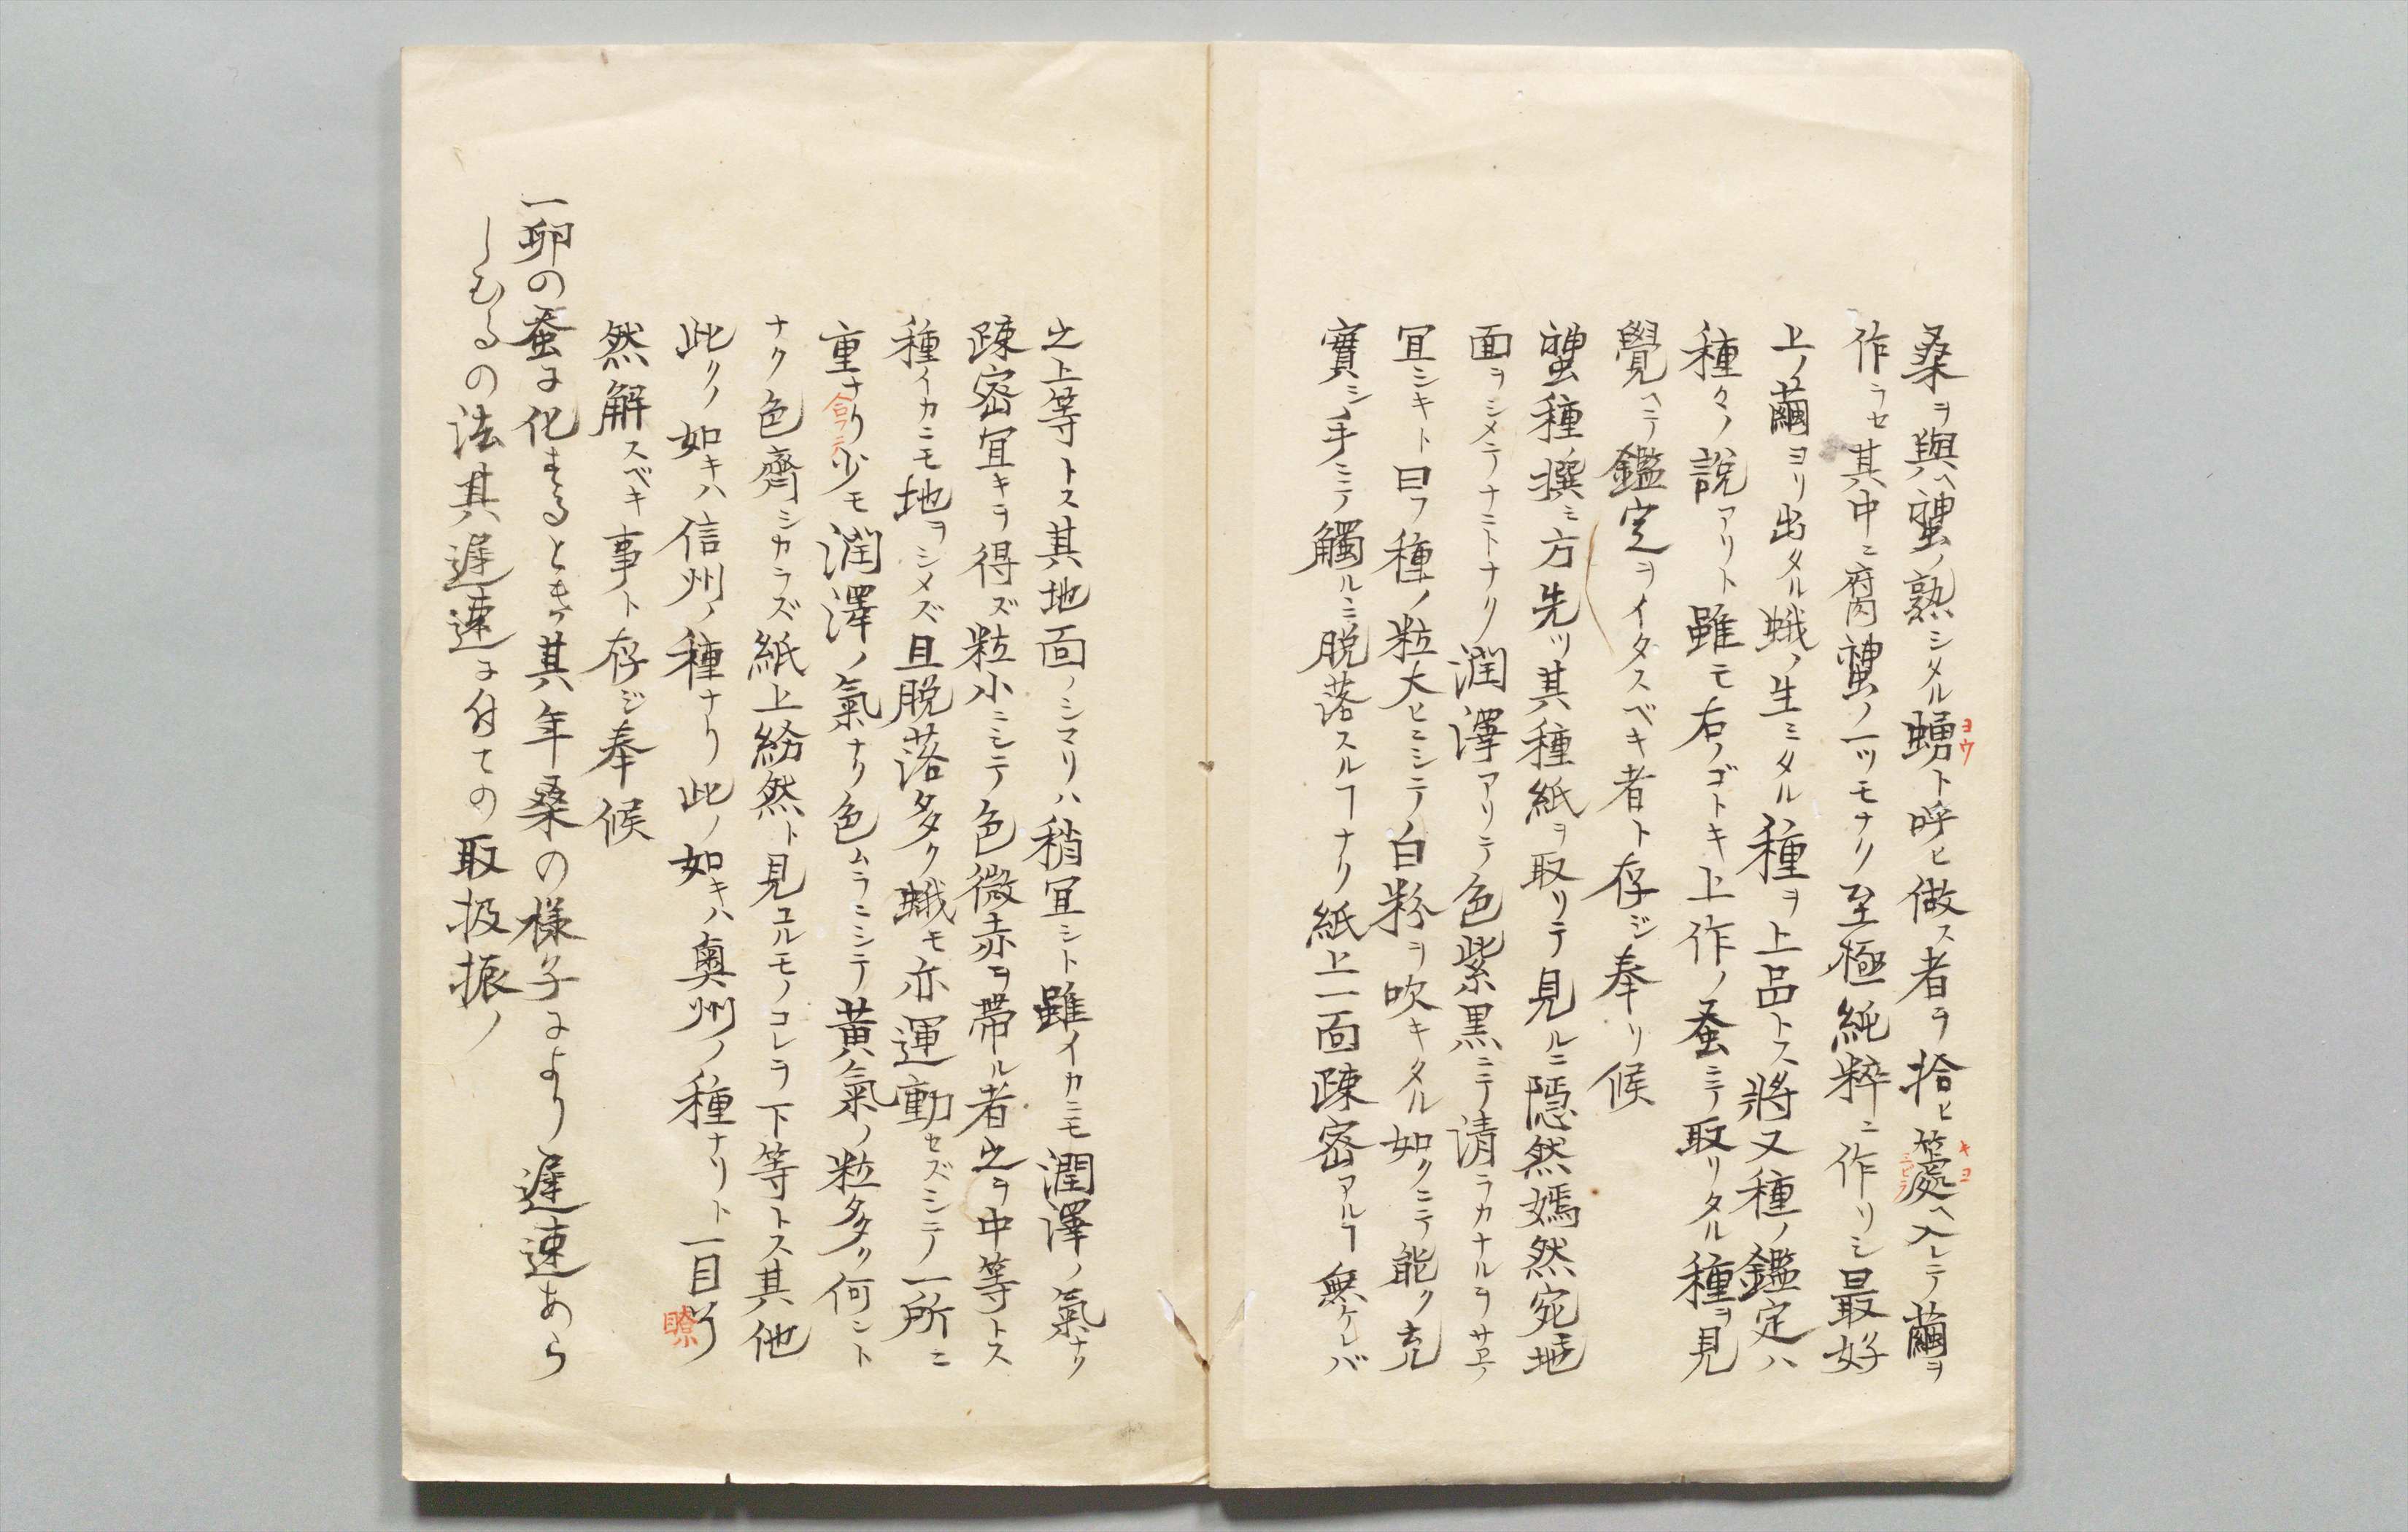 桑ヲ與ヘ蠶ノ熟シタル蛹ト呼ヒ做ス者ヲ拾ヒ籧ヘ入レテ繭ヲ
ヨウ
キヨ
作ラセ其中ニ腐蠶ノ一ツモナク至極純粹ニ作リシ最好
上ノ繭ヨリ出タル蛾ノ生ミタル種ヲ上品トス將又種ノ鑑定ハ
種々ノ説アリト雖モ右ノゴトキ上作ノ蚕ニテ取リタル種ヲ見
覺ヘテ鑑定ヲイタスベキ者ト存ジ奉リ候
蠶種撰ミ方先ツ其種紙ヲ取リテ見ルニ隠然嫣然宛モ地
面ヲシメテナニトナク潤澤アリテ色紫黒ニテ清ラカナルヲ
冝シキト曰フ種ノ粒大ヒニシテ白粉ヲ吹キタル如クニテ能ク充
實シ手ニテ觸ルニ脱落スルヿナリ紙上一面疎密アルヿ無ケレバ
之上等トス其地面ノシマリハ稍冝シト雖イカニモ潤澤ノ氣ナク
疎密冝キヲ得ズ粒小ニシテ色微赤ヲ帶ル者之ヲ中等トス
種イカニモ地ヲシメズ且脱落多ク蛾モ亦運動セズシテ一所ニ
重ナリ少モ潤澤ノ氣ナク色ムラニシテ黄氣ノ粒多ク何ント
合フテ
ナク色齊シカラズ紙上紛然ト見ユルモノコレヲ下等トス其他
此クノ如キハ信州ノ種ナリ此ノ如キハ奥州ノ種ナリト一目
瞭
然解スベキ事ト存ジ奉候
一卵の蚕に化するとき其年桑の様子により遅速あら
しむるの法其遅速に付ての取扱振ノ